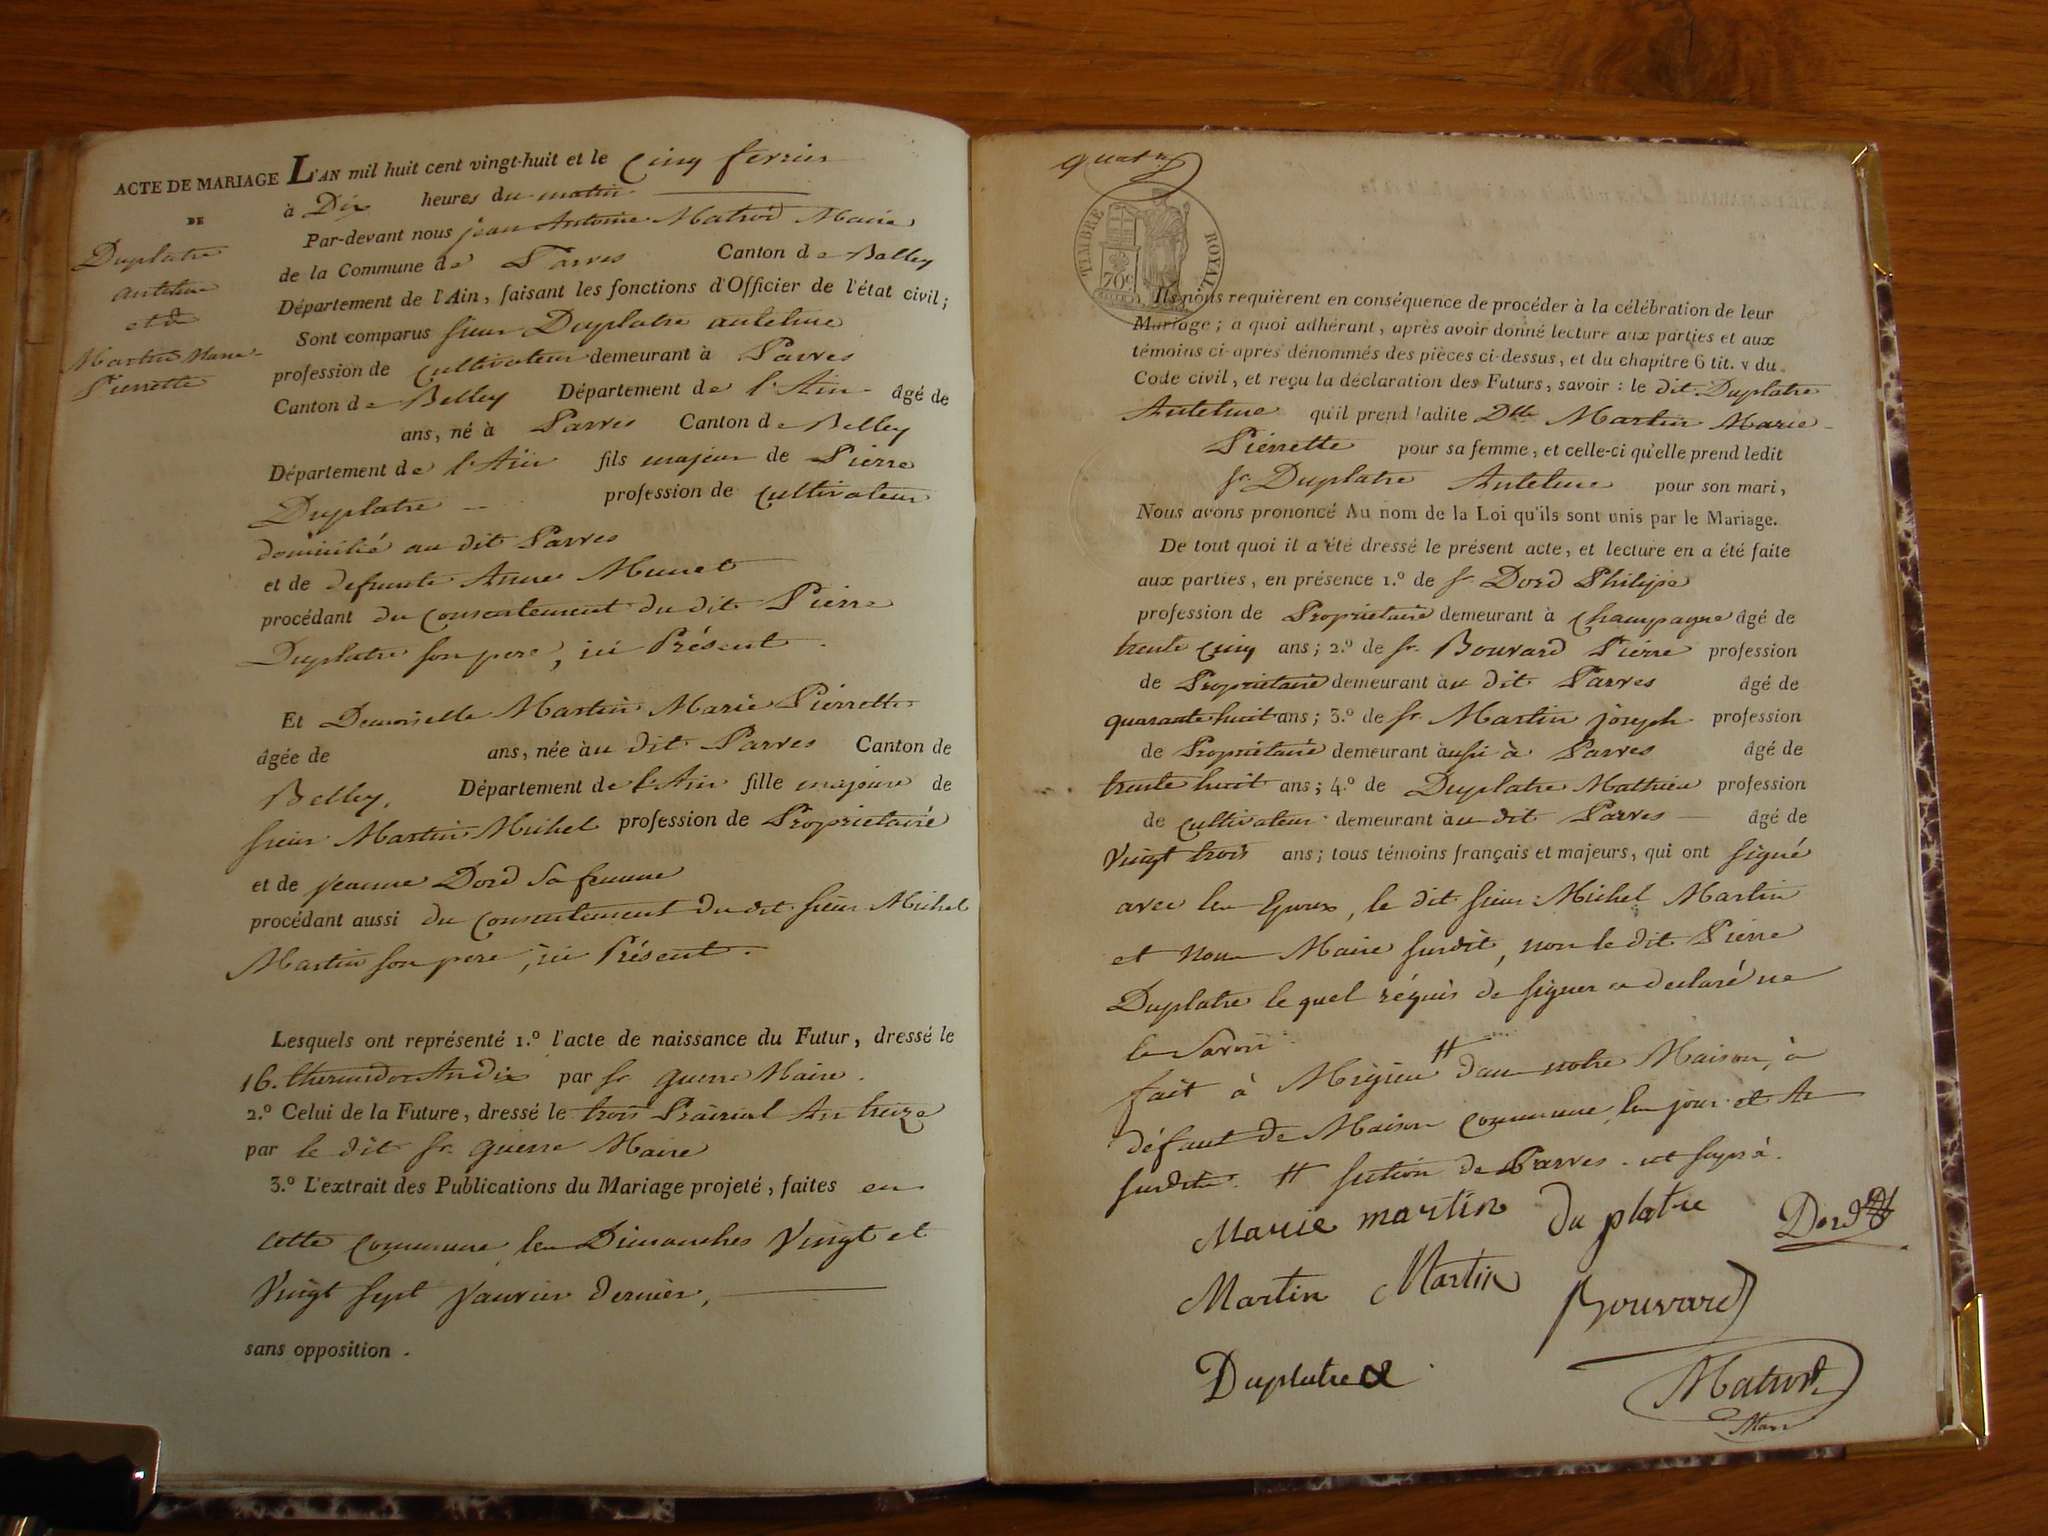 ACTE DE MARIAGE
DE
Duplatre
Antelme
et de
Martin Marie
Pierrette
L'AN mil huit cent vingt-huit et le Cinq fevrier
à Dix heures du matin.
Par-devant nous jean Antoine Matrod Maire
de la Commune de Parves Canton de Belley
Département de l'Ain, faisant les fonctions d'Officier de l'état civil;
Sont comparus sieur Duplatre antelme
profession de cultivateur demeurant à Parves
Canton de Belley Département de l'Ain âgé de
ans, né à Parves Canton de Belley
Département de l'Ain fils majeur de Pierre
Duplatre profession de Cultivateur
domicilié au dit Parves
et de defunte Anne Munet
procédant du Consentement du dit Pierre
Duplatre son pere, ici Présent.
Et Demoiselle Martin Marie Pierrette
âgée de ans, née àu dit Parves Canton de
Belley, Département de l'Ain fille majeure de
sieur Martin Michel profession de Proprietaire
et de jeanne Dord sa femme
procédant aussi du Consentement du dit sieur Michel
Martin son pere, ici Présent.
Lesquels ont représenté 1.º l'acte de naissance du Futur, dressé le
16. thermidor An dix par sr guerre Maire.
2.º Celui de la Future, dressé le trois Prairial An treize
par le dit sr guerre Maire
3.º L'extrait des Publications du Mariage projeté, faites en
cette commune les Dimanches Vingt et
Vingt sept Janvier dernier,
sans opposition.
quatre
TIMBRE ROYAL
70 c
Ils nous requièrent en conséquence de procéder à la célébration de leur
Mariage; a quoi adhérant, après avoir donné lecture aux parties et aux
témoins ci-après dénommés des pièces ci-dessus, et du chapitre 6 tit. v du
Code civil, et reçu la déclaration des Futurs, savoir: le dit Duplatre
Antelme qu'il prend ladite Dlle Martin Marie
Pierrette pour sa femme, et celle-ci qu'elle prend ledit
sr Duplatre Antelme pour son mari,
Nous avons prononcé Au nom de la Loi qu'ils sont unis par le Mariage.
De tout quoi il a été dressé le présent acte, et lecture en a été faite
aux parties, en présence 1.º de sr Dord Philipe
profession de Proprietaire demeurant à Champagne âgé de
trente Cinq ans; 2.º de sr Bouvard Pierre profession
de Proprietaire demeurant àu dit Parves âgé de
quarante huit ans; 3.º de sr Martin joseph profession
de Proprietaire demeurant àussi à Parves âgé de
trente huit ans; 4.º de Duplatre Mathieu profession
de cultivateur demeurant àu dit Parves âgé de
Vingt trois ans; tous témoins français et majeurs, qui ont signé
avec les Epoux, le dit sieur Michel Martin
et nous Maire susdit, non le dit Pierre
Duplatre le quel réquis de signer a declaré ne
le Savoir
fait à # dans notre Maison, à
défaut de Maison commune, les jour et An
susdits. # section de Parves. ut suprà.
Marie martin du platre Dord
Martin Martin Bouvard
Duplatre
Matrod
Maire